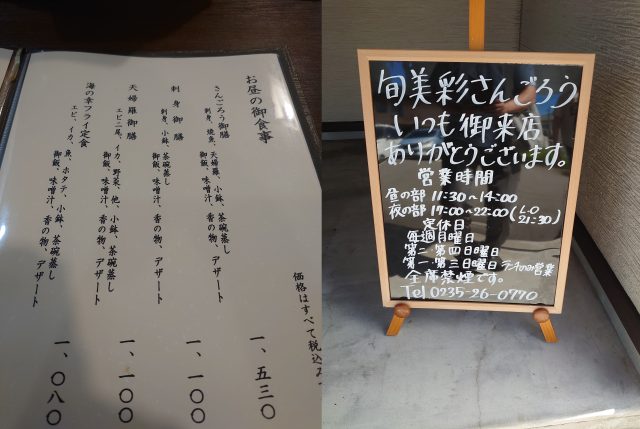 お昼の御食事
さんごろう御膳
刺身、焼魚、天婦羅、小鉢、茶碗蒸し
御飯、味噌汁、香の物、デザート
一、五三〇
刺身御膳
刺身、小鉢、茶碗蒸し
御飯、味噌汁、香の物、デザート
一、一〇〇
天婦羅御膳
エビ二尾、イカ、野菜、他、小鉢、茶碗蒸し
御飯、味噌汁、香の物、デザート
一、一〇〇
海の幸フライ定食
エビ、イカ、魚、ホタテ、小鉢、茶碗蒸し
御飯、味噌汁、香の物、デザート
一、〇八〇
価格はすべて税込み
旬美彩さんごろう
いつも御来店
ありがとうございます。
営業時間
昼の部 11:30~14:00
夜の部 17:00~22:00(L・O 21:30)
定休日
毎週月曜日
第二・第四日曜日
第一・第三日曜日ランチのみ営業
全席禁煙です。
Tel 0235-26-0770